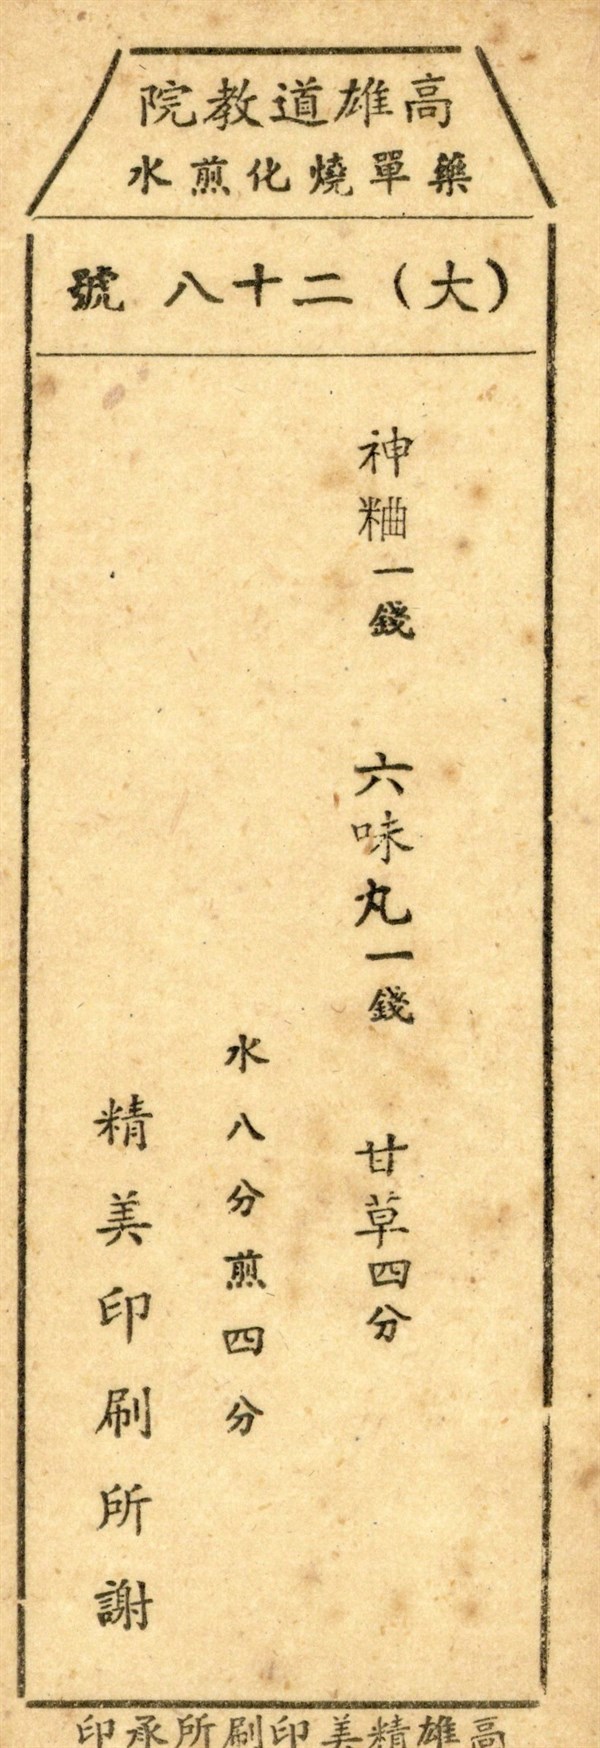 高雄道教院
藥單燒化煎水
（大）二十八號
神粬一錢　六味丸一錢　甘草四分
水八分煎四分
精美印刷所謝
高雄精美印刷所承印